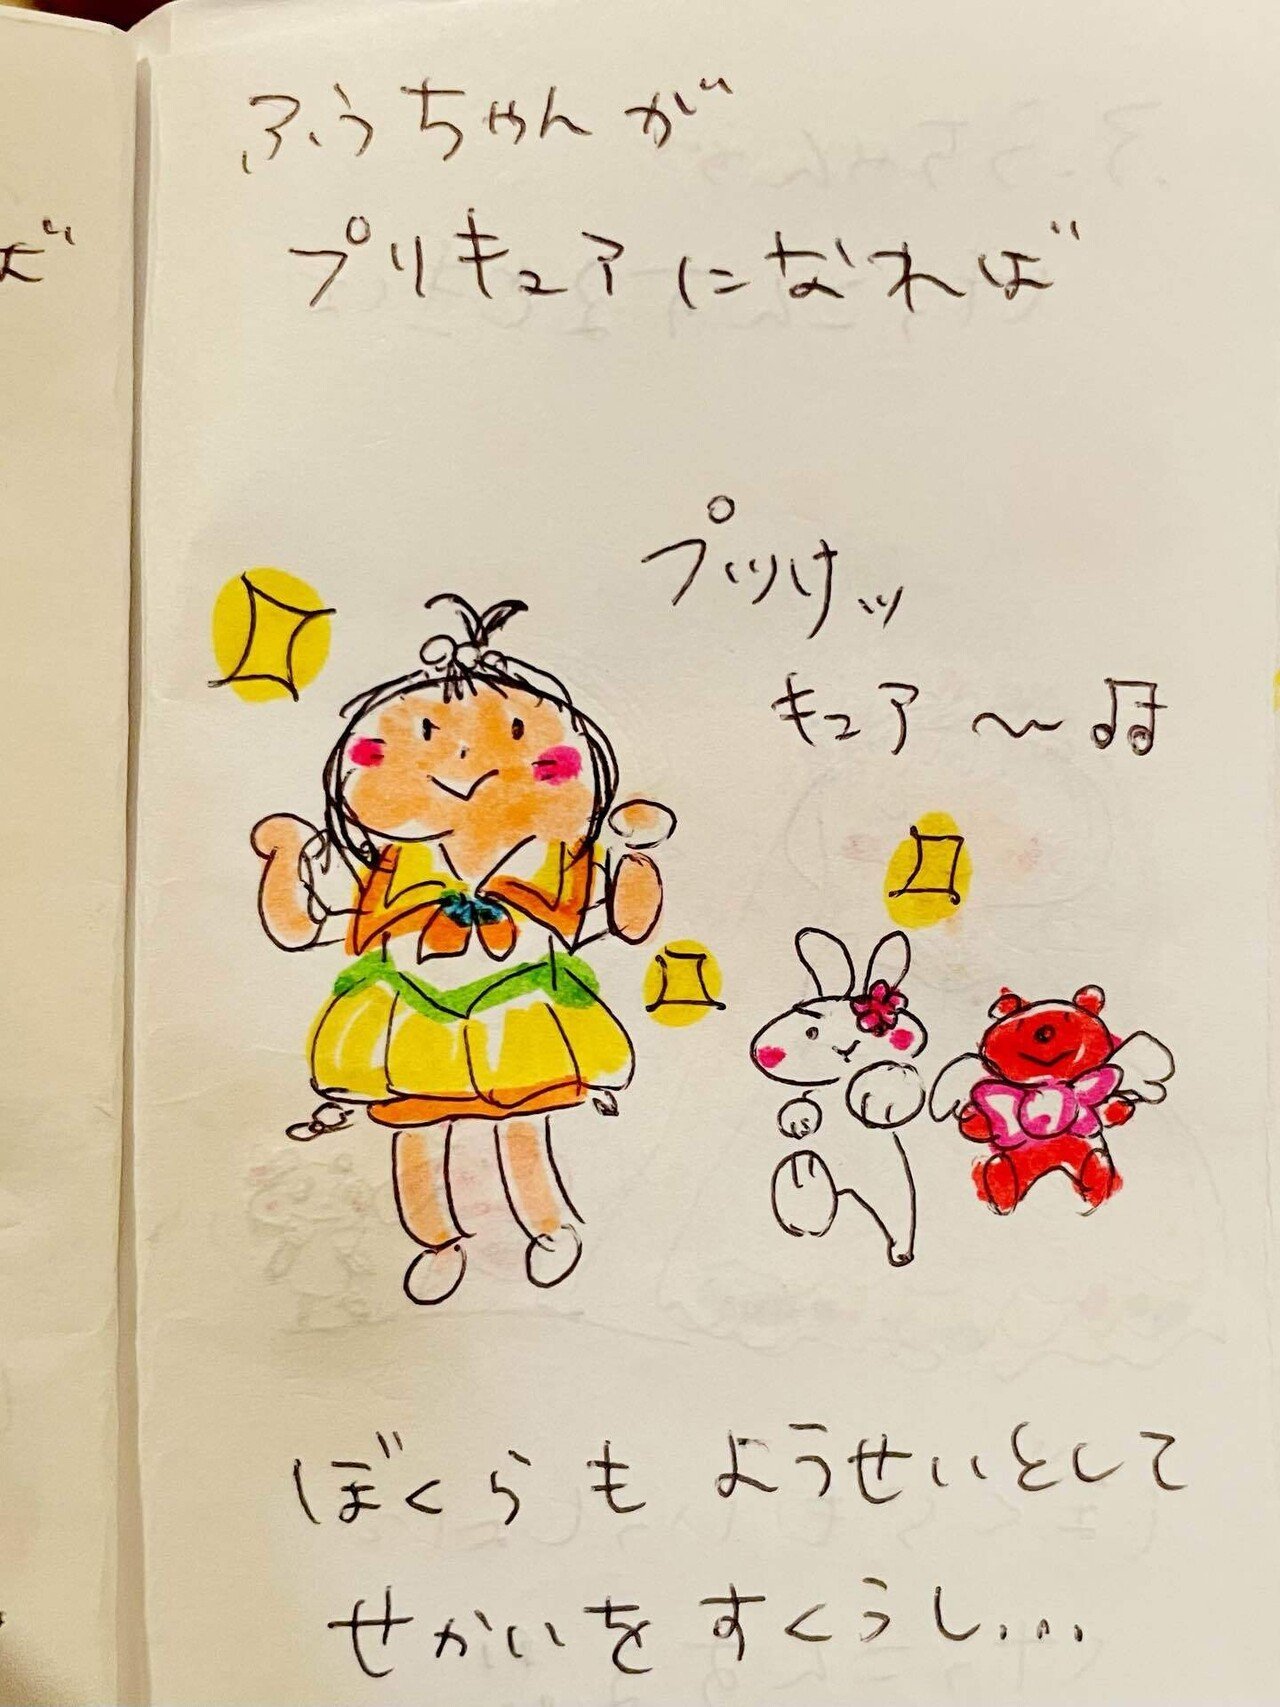 ふうちゃんが
プリキュアになれば
プッけッ
キュア〜♫
ぼくらも ようせいとして
せかいを すくうし...